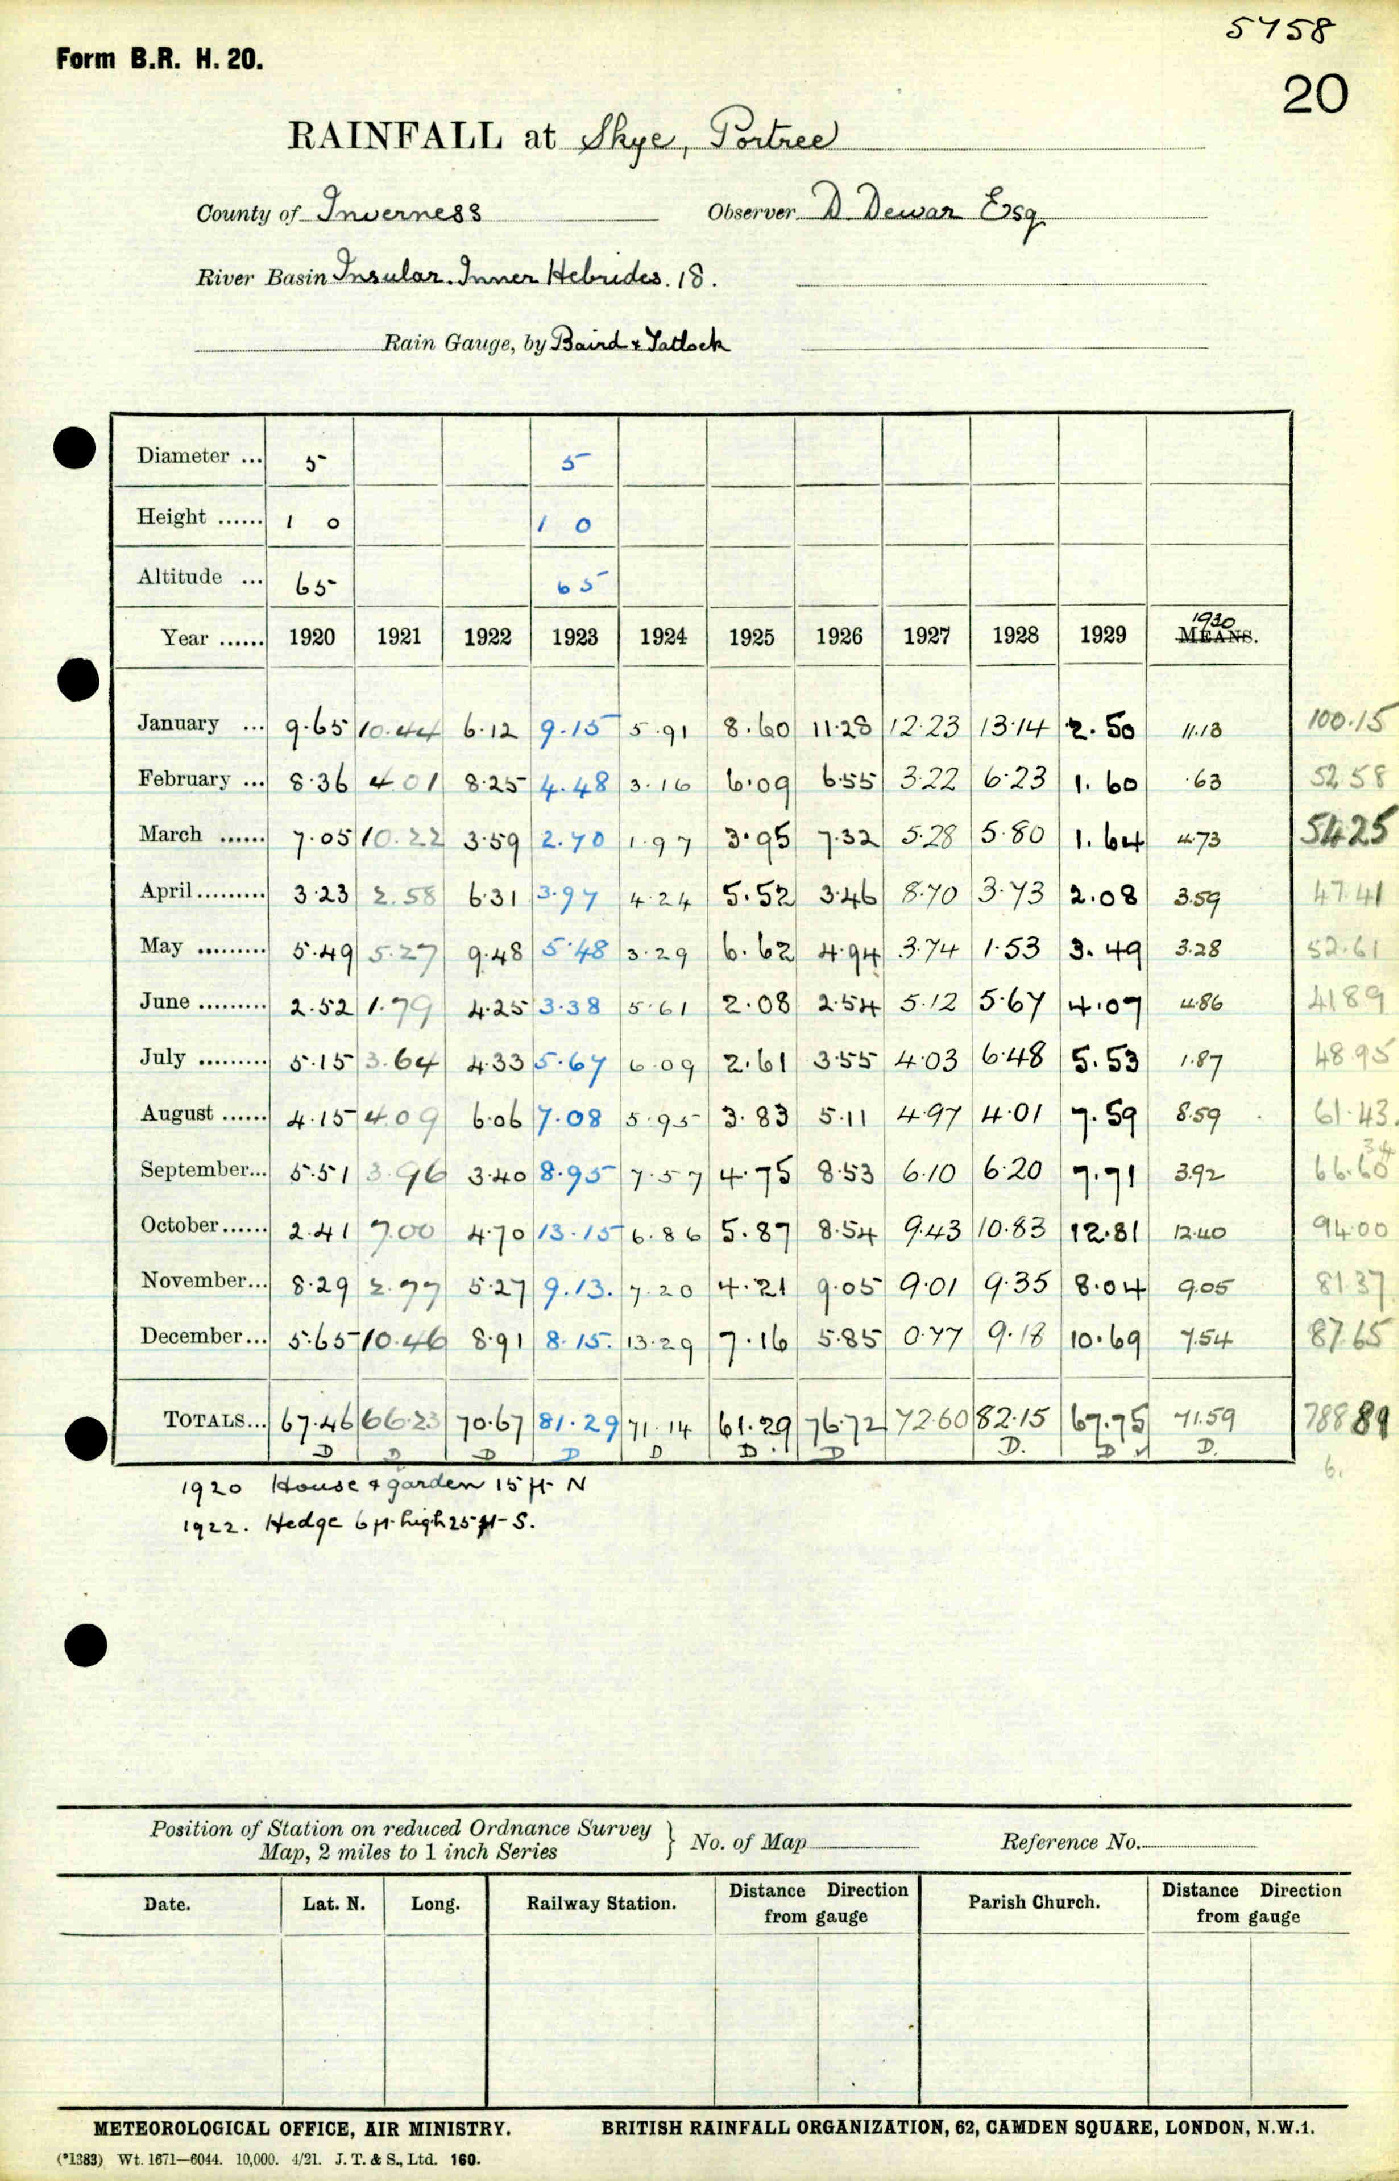 5758
Form B.R. H. 20.
20
RAINFALL at Skye, Portree
County of Inverness Observer D Dewar Esq
River Basin Insular. Inner Hebrides. 18.
Rain Gauge, by Baird & Tatlock
Diameter ... 5 5
Height ...... 1 0 1 0
Altitude ... 65 65
1930
Year ...... 1920 1921 1922 1923 1924 1925 1926 1927 1928 1929 MEANS.
January ... 9.65 10.44 6.12 9.15 5.91 8.60 11.28 12.23 13.14 2.50 11.13 100.15
February ... 8.36 4.01 8.25 4.48 3.16 6.09 6.55 3.22 6.23 1.60 .63 52 58
March ...... 7.05 10.22 3.59 2.70 1.97 3.95 7.32 5.28 5.80 1.64 4.73 54.25
April ......... 3.23 2.58 6.31 3.97 4.24 5.52 3.46 8.70 3.73 2.08 3.59 47.41
May ......... 5.49 5.27 9.48 5.48 3.29 6.62 4.94 3.74 1.53 3.49 3.28 52.61
June ......... 2.52 1.79 4.25 3.38 5.61 2.08 2.54 5.12 5.67 4.07 4.86 41 89
July ......... 5.15 3.64 4.33 5.67 6.09 2.61 3.55 4.03 6.48 5.53 1.87 48.95
August ...... 4.15 4.09 6.06 7.08 5.95 3.83 5.11 4.97 4.01 7.59 8.59 61.43.
34
September... 5.51 3.96 3.40 8.95 7.57 4.75 8.53 6.10 6.20 7.71 3.92 66.60
October ...... 2.41 7.00 4.70 13.15 6.86 5.87 8.54 9.43 10.83 12.81 12.40 94.00
November... 8.29 2.77 5.27 9.13. 7.20 4.21 9.05 9.01 9.35 8.04 9.05 81.37
December... 5.65 10.46 8.91 8.15. 13.29 7.16 5.85 0.77 9.18 10.69 7.54 87.65
TOTALS... 67.46 66.23 70.67 81.29 71.14 61.29 76.72 72.60 82.15 67.75 71.59 788 89
D D D D D D. D D. D ✓ D.
6.
1920 House & garden 15 ft N
1922. Hedge 6 ft high 25 ft S.
Position of Station on reduced Ordnance Survey
Map, 2 miles to 1 inch Series } No. of Map Reference No.
Date. Lat. N. Long. Railway Station. Distance Direction from gauge Parish Church. Distance Direction from gauge
METEOROLOGICAL OFFICE, AIR MINISTRY. BRITISH RAINFALL ORGANIZATION, 62, CAMDEN SQUARE, LONDON, N.W.1.
(*1383) Wt. 1671—6044. 10,000. 4/21. J. T. & S., Ltd. 160.